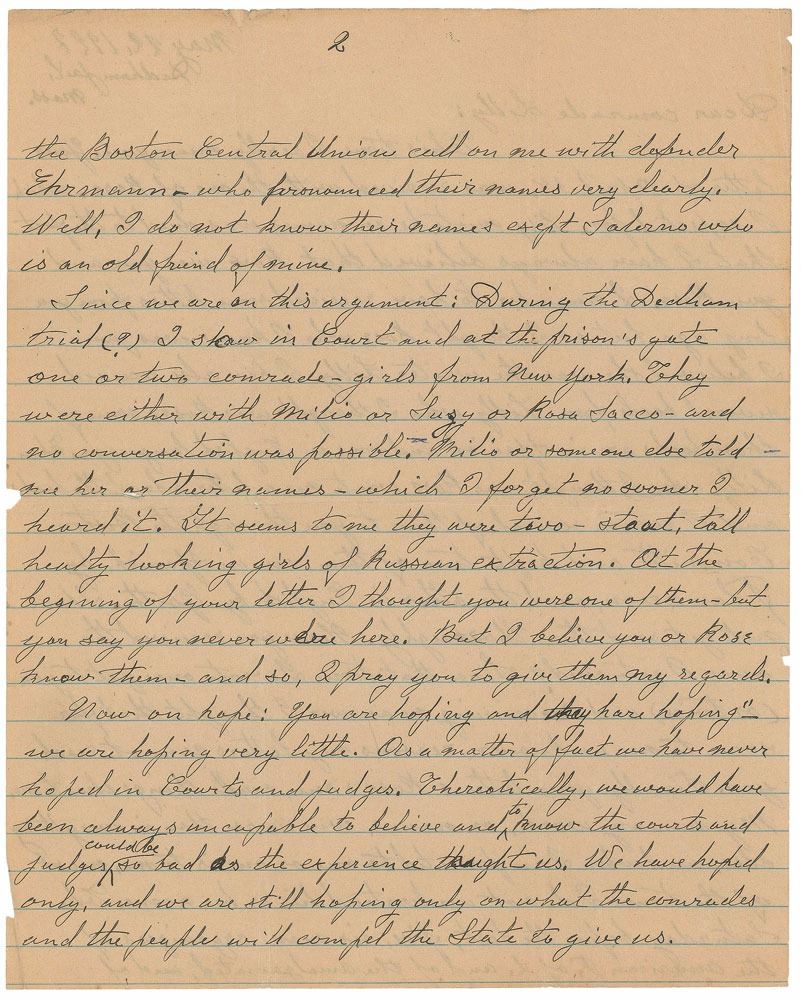 2
the Boston Central Union call on me with defender
Ehrmann - who pronounced their names very clearly.
Well, I do not know their names exept Salerno who
is an old friend of mine.
Since we are on this argument: During the Dedham
trial (?) I shaw in Court and at the prison's gate
one or two comrade-girls from New York. They
were either with Milio or Susy or Rosa Sacco - and
no conversation was possible. Milio or someone else told -
me her or their names - which I forget no sooner I
heard it. It seems to me they were two - stout, tall
healty looking girls of Russian extraction. At the
begining of your letter I thought you were one of them - but
you say you never were here. But I believe you or Rose
know them - and so, I pray you to give them my regards.
Now on hope: You are hoping and they hare hoping" -
we are hoping very little. As a matter of fact we have never
hoped in Courts and judges. Thereotically, we would have
been always uncapable to believe and to know the courts and
judges could be so bad as the experience thaught us. We have hoped
only, and we are still hoping only on what the comrades
and the people will compel the State to give us.